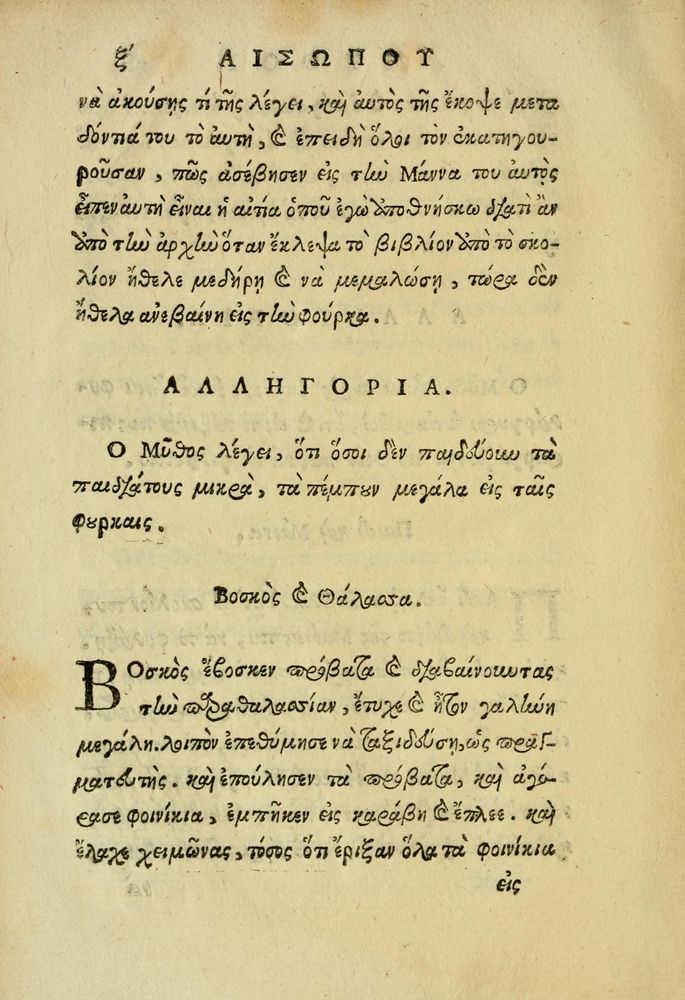 ξ′ ΑΙΣΩΠΟΥ
νὰ ἀκούσῃς τί τῆς λέγει, καὶ ἀυτὸς τῆς ἔκοψε μετα
δόντιά του τὸ ἀυτὴ, καὶ ἐπειδὴ ὅλοι τὸν ἐκατηγου-
ροῦσαν, πῶς ἀσέβησεν εἰς τὴν Μάννα του ἀυτὸς
εἶπεν ἀυτὴ εἶναι ἡ αἰτία ὁποῦ ἐγὼ ἀποθνήσκω διατὶ ἂν
ἀπὸ τὴν ἀρχὴν ὅταν ἔκλεψα τὸ βιβλίον ἀπὸ τὸ σκο-
λίον ἤθελε μεδήρῃ καὶ νὰ μεμαλώσῃ, τώρα δὲν
ἤθελα ἀνεβαίνῃ εἰς τὴν φούρκα.
ΑΛΛΗΓΟΡΙΑ.
Ο Μῦθος λέγει, ὅτι ὅσοι δὲν παιδεύουν τὰ
παιδιάτους μικρὰ, τὰ πέμπουν μεγάλα εἰς ταῖς
φουρκαις.
Βοσκὸς καὶ Θάλασσα.
ΒΟσκὸς ἔβοσκεν πρόβατα καὶ διαβαίνοντας
τὴν παραθαλασσίαν, ἔτυχε καὶ ἦτον γαλήνη
μεγάλη. λοιπὸν ἐπεθύμησε νὰ ταξιδεύσῃ, ὡς πραγ-
ματευτής. καὶ ἐπούλησεν τὰ πρόβατα, καὶ ἀγό-
ρασε φοινίκια, ἐμπῆκεν εἰς καράβη καὶ ἔπλεε. καὶ
ἔλαχε χειμῶνας, τόσος ὅτι ἔριξαν ὅλα τὰ φοινίκια
εἰς